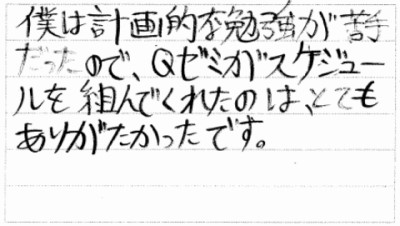 僕は計画的な勉強が苦手
だったので、Qゼミがスケジュー
ルを組んでくれたのは、とても
ありがたかったです。